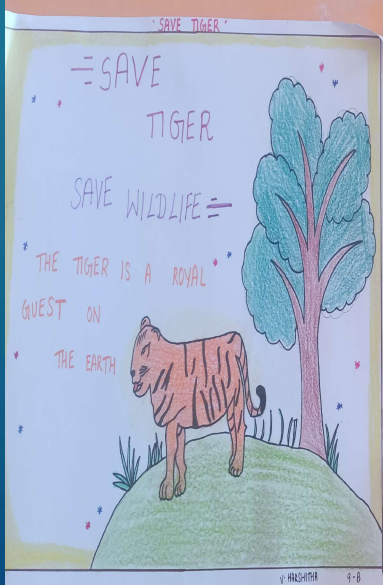 'SAVE TIGER'
SAVE
TIGER
SAVE WILDLIFE
THE TIGER IS A ROYAL
GUEST ON
THE EARTH
V HARSHITHA 9-B